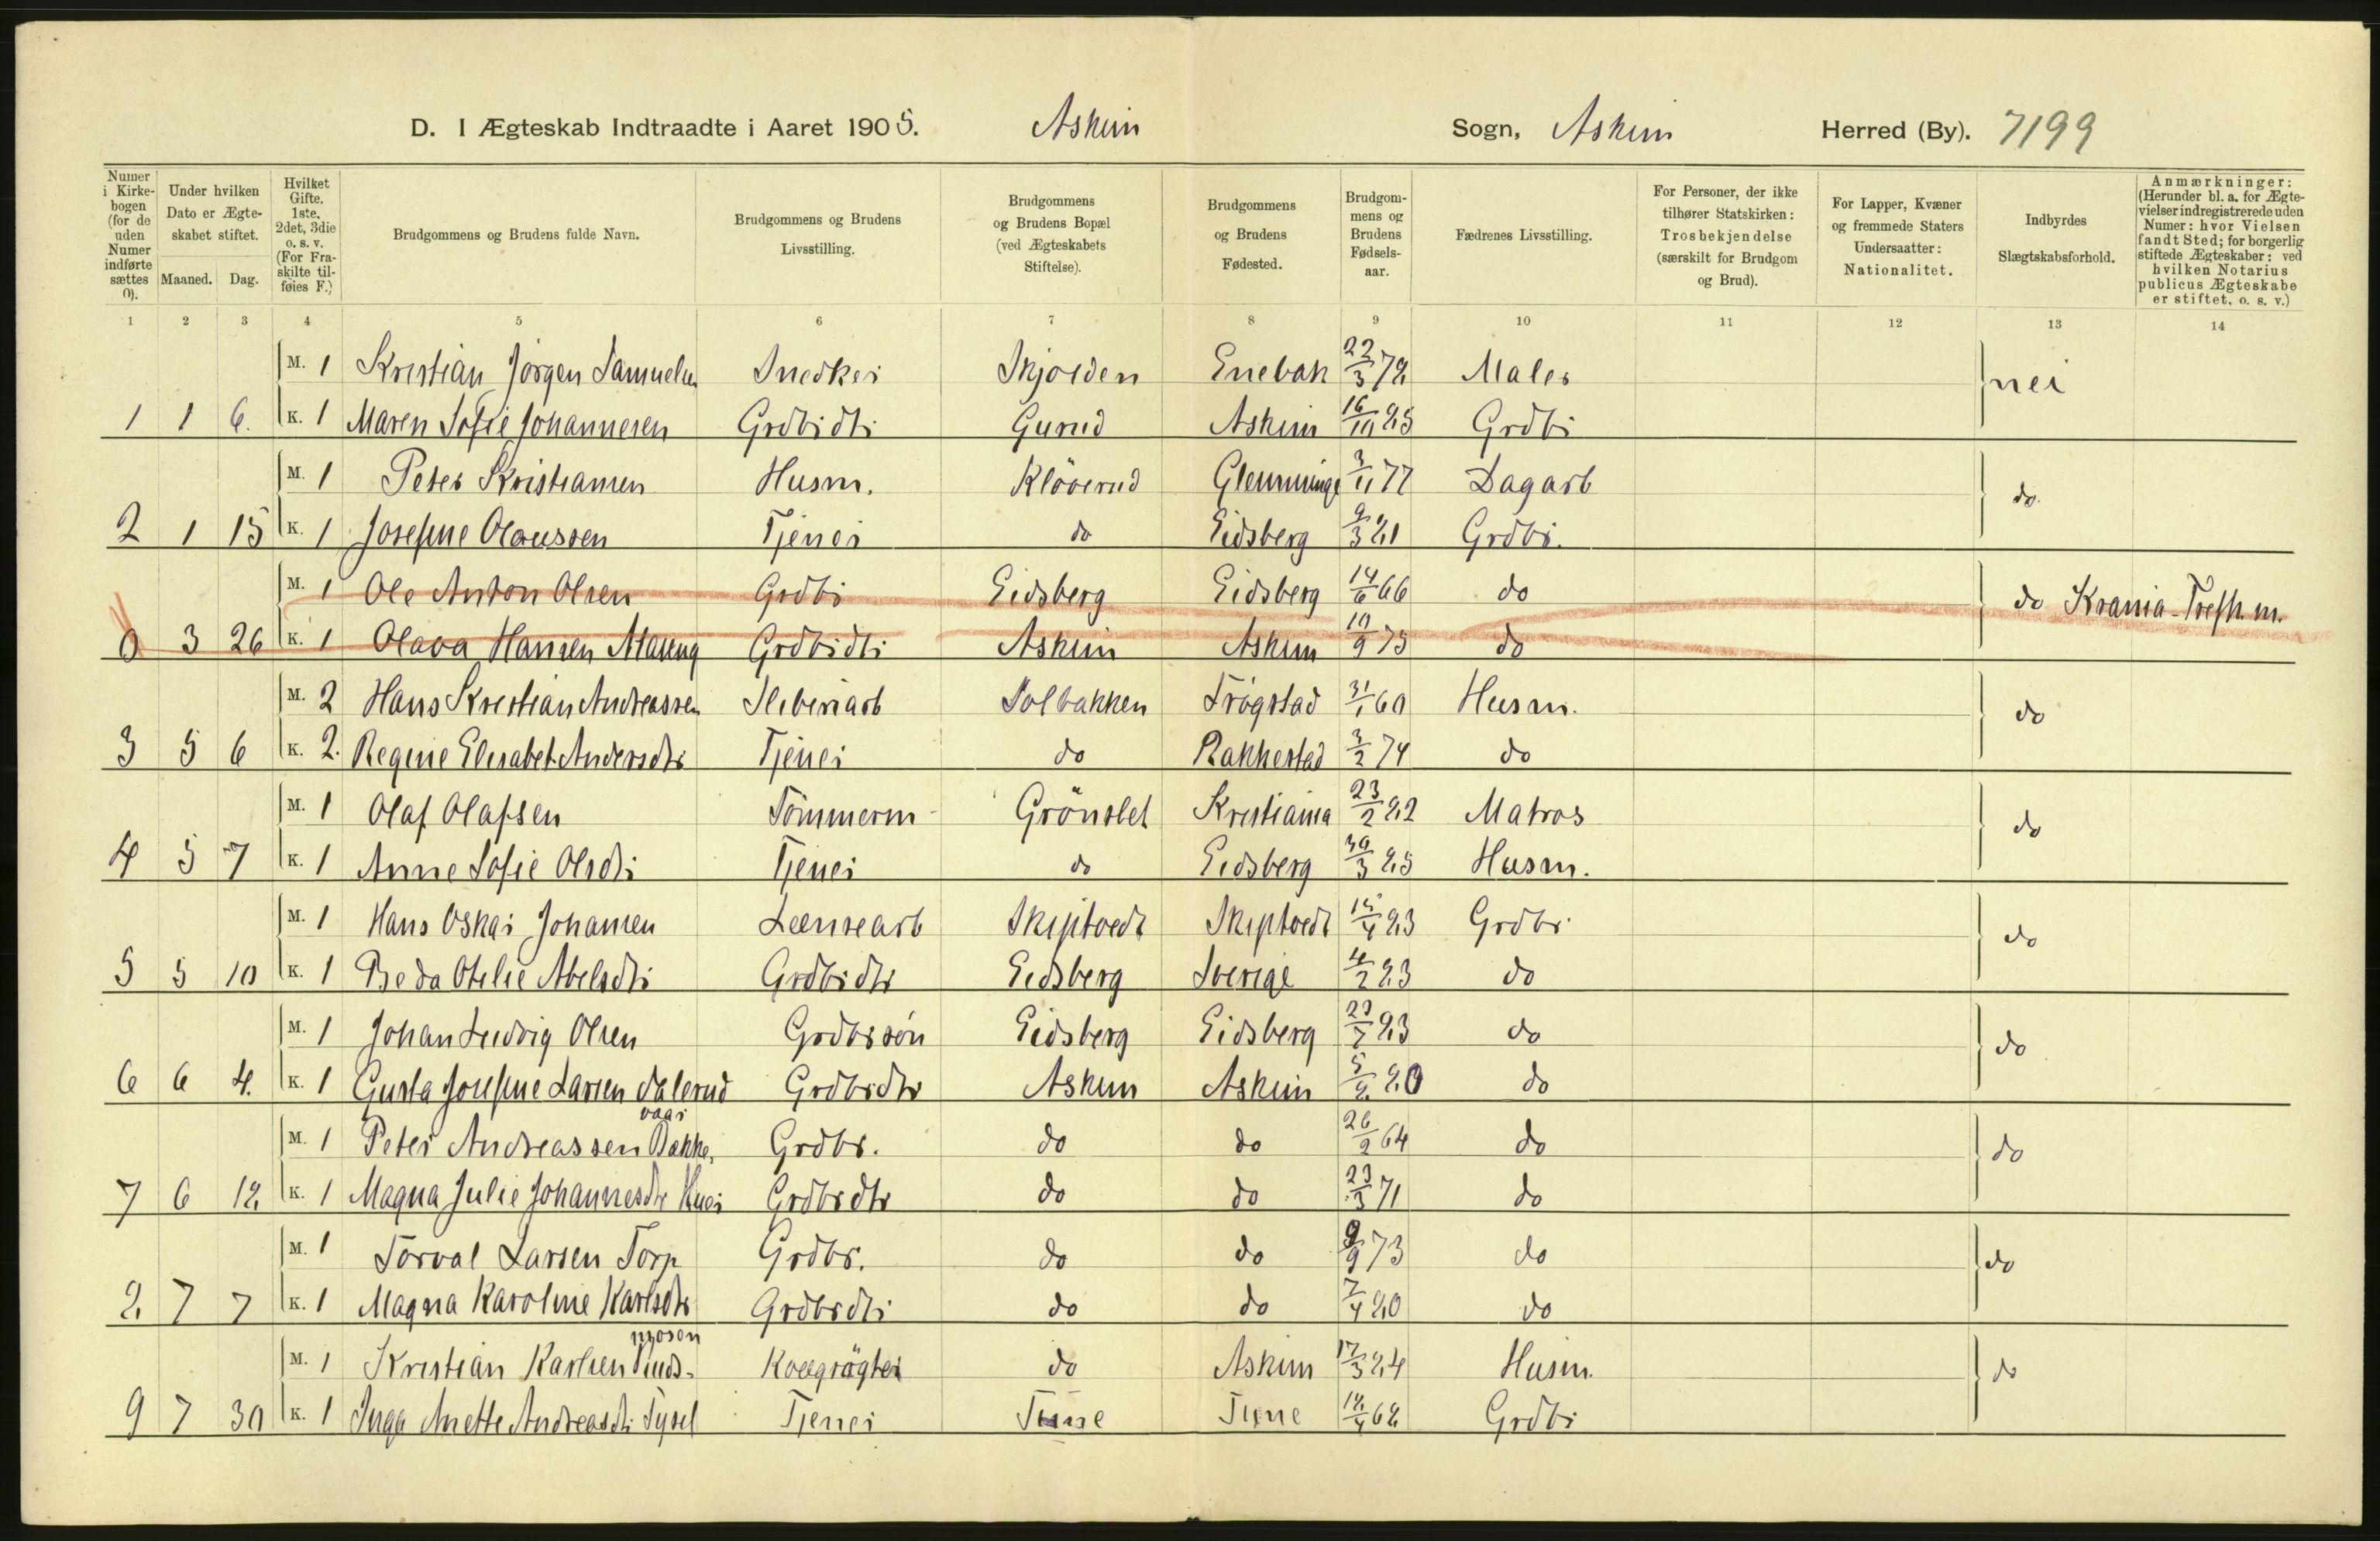 D. I Ægteskab Indtraadte i Aaret 1905. Askim Sogn, Askim Herred (By). 7199
Numer i Kirkebogen (for de uden Numer indførte sættes 0).
Under hvilken Dato er Ægteskabet stiftet.
Maaned. Dag.
Hvilket Gifte. 1ste, 2det, 3die o. s. v. (For Fraskilte tilføies F.)
Brudgommens og Brudens fulde Navn.
Brudgommens og Brudens Livsstilling.
Brudgommens og Brudens Bopæl (ved Ægteskabets Stiftelse).
Brudgommens og Brudens Fødested.
Brudgommens og Brudens Fødselsaar.
Fædrenes Livsstilling.
For Personer, der ikke tilhører Statskirken: Trosbekjendelse (særskilt for Brudgom og Brud).
For Lapper, Kvæner og fremmede Staters Undersaatter: Nationalitet.
Indbyrdes Slægtskabsforhold.
Anmærkninger: (Herunder bl. a. for Ægtevielser indregistrerede uden Numer: hvor Vielsen fandt Sted; for borgerlig stiftede Ægteskaber: ved hvilken Notarius publicus Ægteskabe er stiftet, o. s. v.)
1 2 3 4 5 6 7 8 9 10 11 12 13 14
M. 1 Kristian Jörgen Samuelsen Snedker Skjolden Enebak 22/3 78 Maler nei
1 1 6. K. 1 Maren Sofie Johannesen Grdbrdtr Gurud Askim 16/10 85 Grdbr
M. 1 Peter Kristiansen Husm. Klöverud Glemminge 3/11 77 Dagarb do.
2 1 15 K. 1 Josefine Olaussen Tjener do Eidsberg 9/3 81 Grdbr.
M. 1 Ole Anton Olsen Grdbr Eidsberg Eidsberg 14/6 66 do do Krania - Trefh. m.
0 3 26 K. 1 Olava Hansen Grdbrdtr Askim Askim 10/9 75 do
M. 2 Hans Kristian Andreassen Sliberiarb Solbakken Trögstad 31/1 60 Husm. do
3 5 6 K. 2. Regine Elisabet Andersdtr Tjener do Rakkestad 3/2 74 do
M. 1 Olaf Olafsen Tömmerm Grönslet Kristiania 23/2 82 Matros do
4 5 7 K. 1 Anne Sofie Olsdtr Tjener do Eidsberg 30/3 85 Husm.
M. 1 Hans Oskar Johansen Lænsearb Skiptvedt Skiptvedt 15/4 83 Grdbr do
5 5 10 K. 1 Beda Otelie Abelsdtr Grdbrdtr Eidsberg Sverige 4/2 83 do
M. 1 Johan Ludvig Olsen Grdbrsön Eidsberg Eidsberg 29/7 83 do do
6 6 4. K. 1 Gusta Josefine Larsen Grdbrdtr Askim Askim 5/8 80 do
vaar
M. 1 Peter Andreassen Bakke, Grdbr. do do 26/2 64 do do
7 6 12 K. 1 Magna Julie Johannesdtr Grdbrdtr do do 29/3 71 do
M. 1 Torval Larsen Torp Grdbr. do do 9/9 73 do do
8. 7 7 K. 1 Magna Karoline Karlsdtr Grdbrdtr do do 7/4 80 do
M. 1 Kristian Karlsen Ruds- mosen Kvægrögter do Askim 17/3 84 Husm. do
9 7 30 K. 1 Inga Anette Andreasdtr Tjener Tune Tune 12/4 68 Grdbr